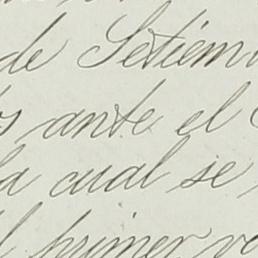 de Setiem
ante el
la cual se
primer